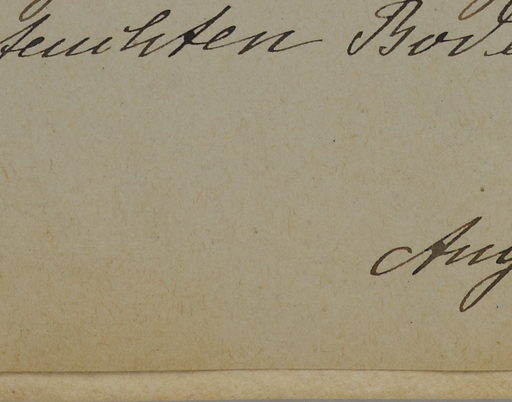 feuchten Bode
Aug